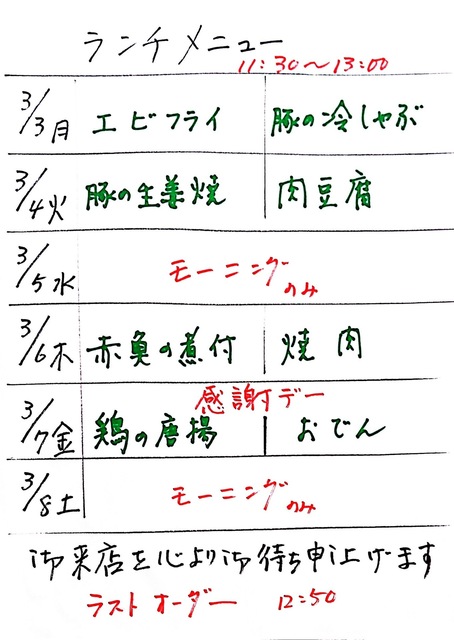 ランチメニュー
11:30〜13:00
3/3月 エビフライ 豚の冷しゃぶ
3/4火 豚の生姜焼 肉豆腐
3/5水 モーニングのみ
3/6木 赤魚の煮付 焼肉
感謝デー
3/7金 鶏の唐揚 おでん
3/8土 モーニングのみ
御来店を心より御待ち申上げます
ラストオーダー 12:50